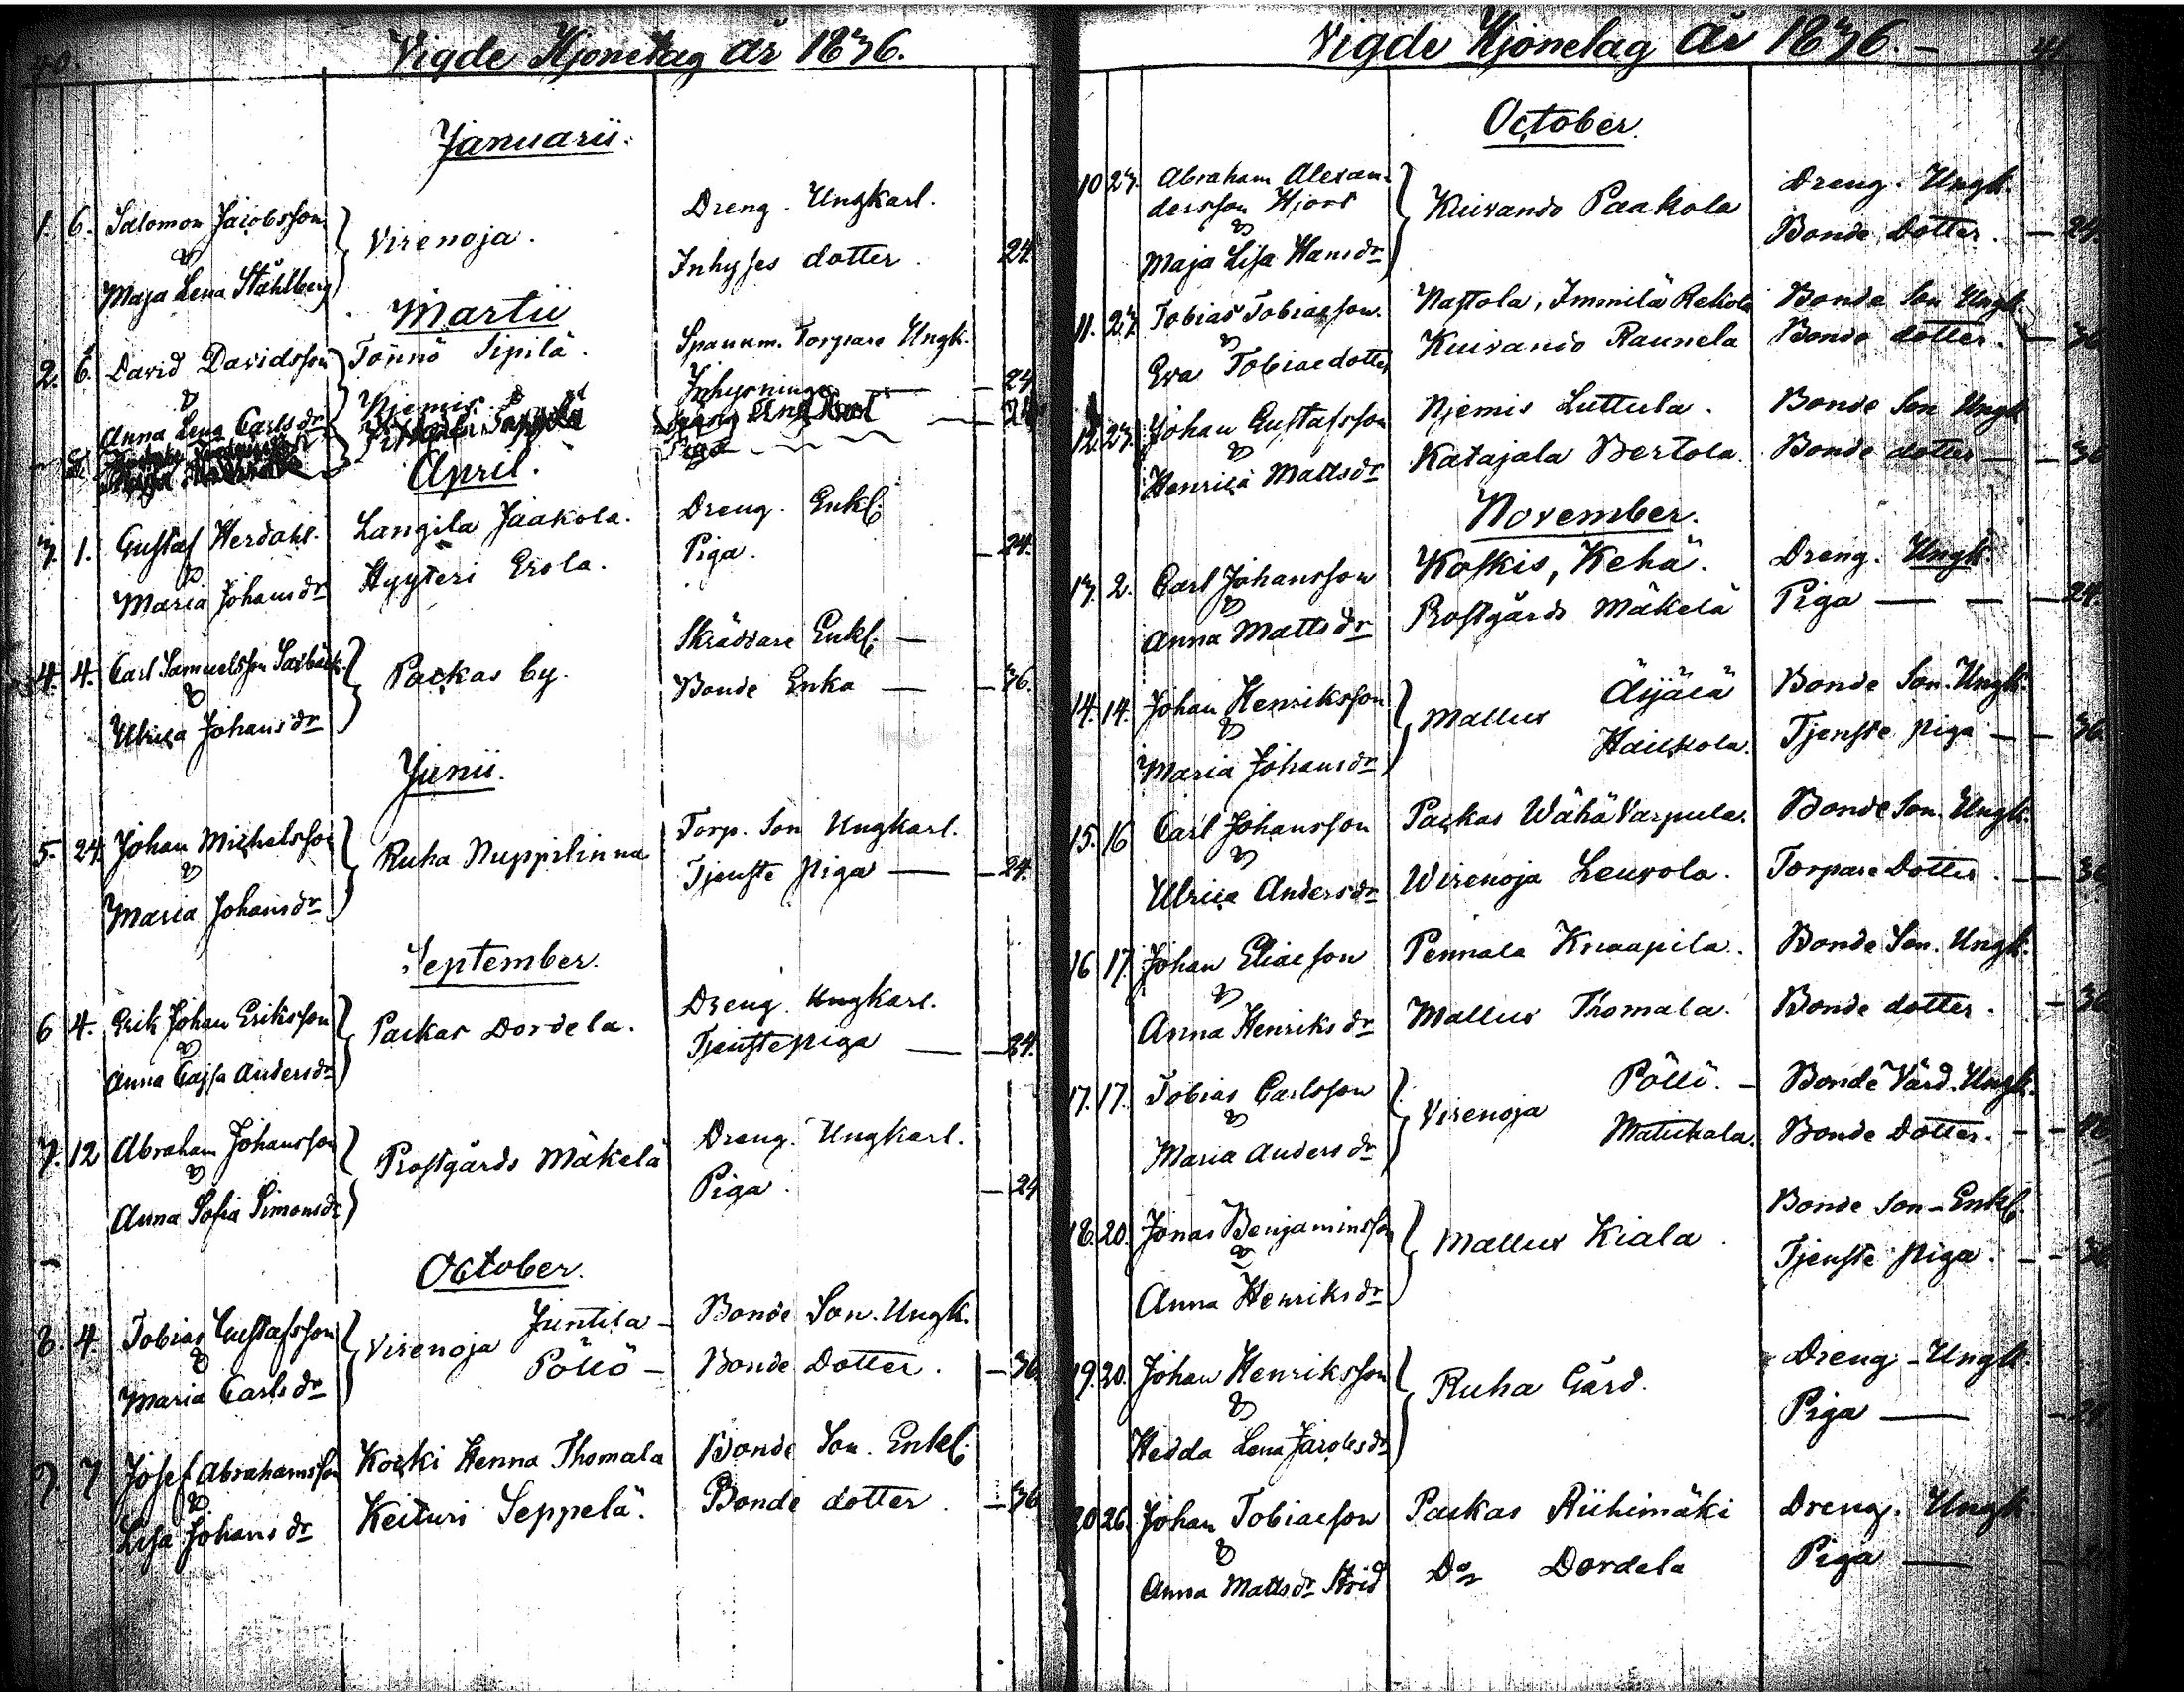 40.
Vigde Hjonelag år 1836.
Januarii.
1. 6. Salomon Jacobsson Dreng. Ungkarl.
& Virenoja.
Maja Lena Ståhlberg Inhyses dotter. 24.
Martii
2. 6. David Davidsson Tönnö Sipilä. Spanm. Torpare Ungk.
&
Anna Lena Carlsdr Njemis Inhysninge — 24
April.
3. 1. Gustaf Herdahl. Langila Jaakola. Dreng. Enkl.
&
Maria Johansdr Hyyteri Erola. Piga. — 24.
4. 4. Carl Samuelsson Skräddare Enkl. —
& Packas by.
Ulrica Johansdr Bonde Enka — — 36.
Junii.
5. 24. Johan Michelsson Torp. Son Ungkarl.
& Ruha Nuppilinna
Maria Johansdr Tjenste piga — — 24.
September.
6 4. Erik Johan Eriksson Dreng. Ungkarl.
& Packas Dordela.
Anna Cajsa Andersdr Tjenstepiga — — 24.
7. 12 Abraham Johansson Dreng. Ungkarl.
& Prostgårds Mäkelä
Anna Sofia Simonsdr Piga. — 24
October.
8. 4. Tobias Gustafsson Virenoja Juntila — Bonde Son. Ungk.
&
Maria Carlsdr Pöllö — Bonde Dotter. — 36.
9. 7 Josef Abrahamsson Koski Henna Thomala Bonde Son. Enkl.
&
Lisa Johansdr Keituri Seppelä. Bonde dotter. — 36
Vigde Hjonelag år 1836. — 41
October.
10 23. Abraham Alexan-
dersson Hjort Kuivando Paakola Dreng. Ungk.
&
Maja Lisa Hansdr Bonde Dotter. — 24.
11. 23. Tobias Tobiasson. Nastola, Immilä Rekola Bonde Son Ungk.
&
Eva Tobiaedotter Kuivando Raunela Bonde dotter. — 36
12. 23. Johan Gustafsson Njemis Luttula. Bonde Son Ungk
&
Henrica Mattsdr Katajala Bertola. Bonde dotter — — 36
November.
13. 2. Carl Johansson Koskis, Kehä. Dreng. Ungk.
&
Anna Mattsdr Prostgårds Mäkelä Piga — — — 24.
14. 14. Johan Henriksson Mallus Äijälä Bonde Son. Ungk.
&
Maria Johansdr Haukola. Tjenste piga — — 36
15. 16 Carl Johansson Packas Wähä Varpula. Bonde Son. Ungk.
&
Ulrica Andersdr Wirenoja Leurola. Torpare Dotter. — 36
16 17. Johan Eliaeson Pennala Knaapila. Bonde Son. Ungk.
&
Anna Henriksdr Mallus Thomala. Bonde dotter. — 36
17. 17. Tobias Carlsson Virenoja Pöllö. — Bonde Värd. Ungk.
&
Maria Andersdr Matickala. Bonde Dotter. —
18. 20. Jonas Benjaminsson Bonde Son — Enkl.
& Mallus Kiala.
Anna Henriksdr Tjenste piga. — — 36
19. 20. Johan Henriksson Dreng — Ungk.
& Ruha Gård.
Hedda Lena Jacobsdr Piga —
20 26. Johan Tobiaeson Packas Riihimäki Dreng. Ungk
&
Anna Mattsdr Strid Do Dordela Piga —